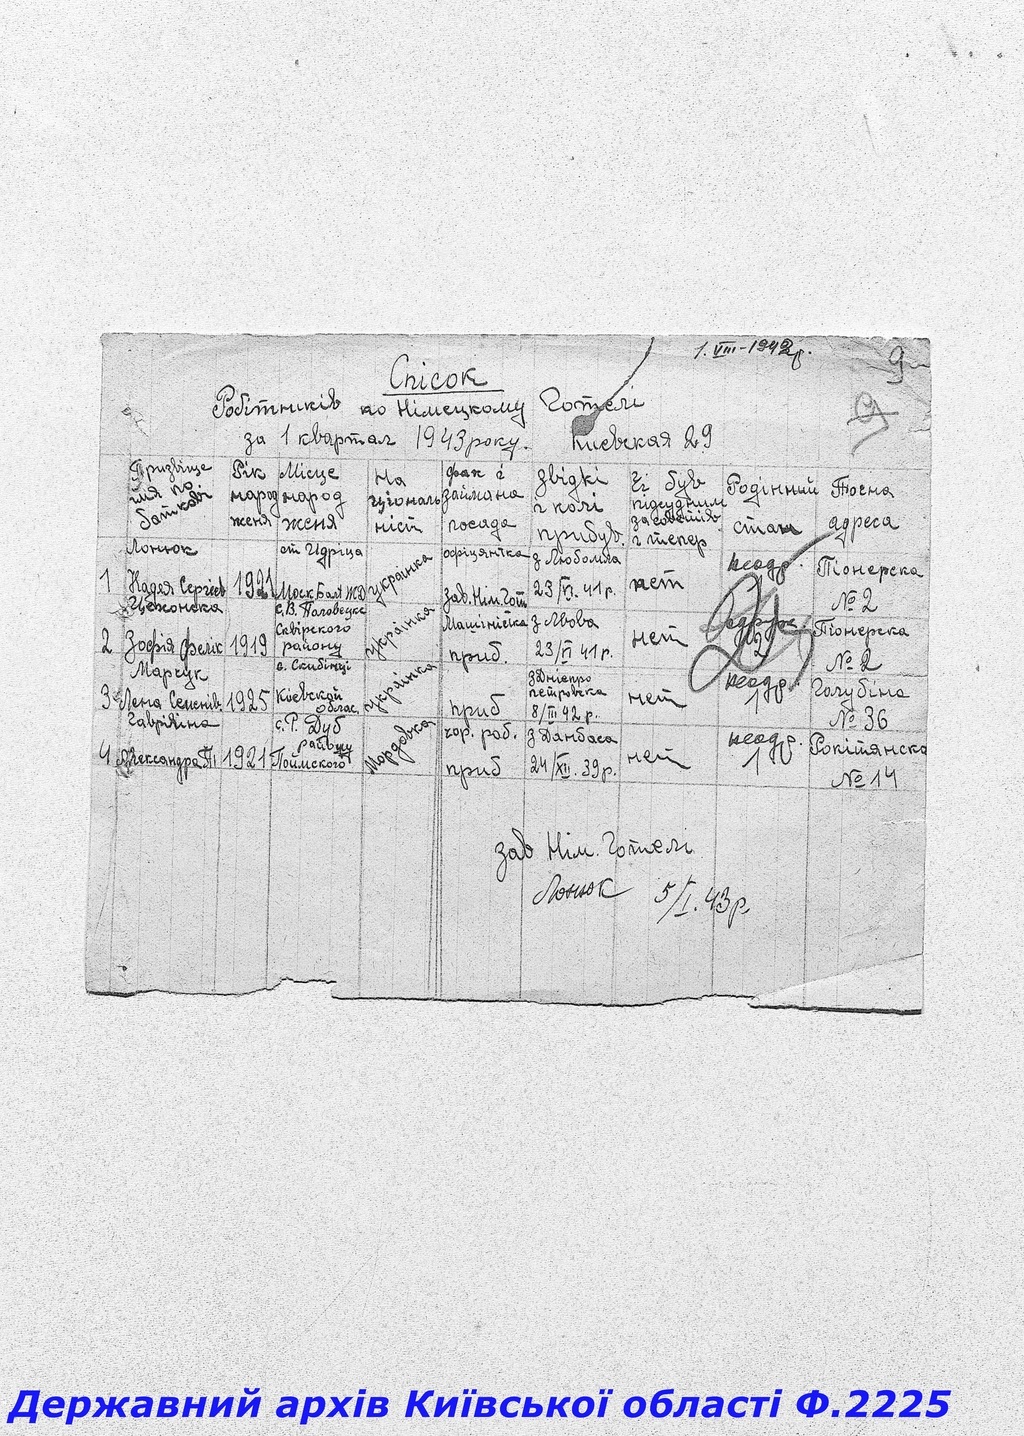 1. VIII-1942р.
9
Спісок
Робітників по Німецкому Готелі
за 1 квартал 1943 року. Киевская 29
Прізвіще імя по баткові
Рік народ женя
Місце народ женя
На ціональ ніст
фах і займана посада
звідкі і колі прибув.
Чі був підсудним за совєтів і тепер
Родінний стан
Точна адреса
1 Лонюк Надя Сергіев 1921 ст Идріца Моск Бал ЖД українка офіціянтка зав. Нім. Гот з Любомла 23/VI. 41р. нет неодр. 1 Піонерска № 2
2 Зофія Фелікс 1919 с. В. Половецке Сквірского району українка Машіністка приб. з Львова 23/VI 41р. нет 2 Піонерска № 2
3 Марсук Лена Семенів 1925 с. Скибінці Кіевской облас. українка приб з Дніепро петровска 8/III 42 р. нет неодр. 1 Голубіна № 36
4 Гаврівіна Александра П 1921 с. Р. Дуб району Поімского Мордовка чор. роб. приб з Данбаса 24/XII. 39р. нет неодр. 1 Рокітянска № 14
зав Нім. Готелі
Лонюк 5/I. 43р.
Державний архів Київської області Ф.2225